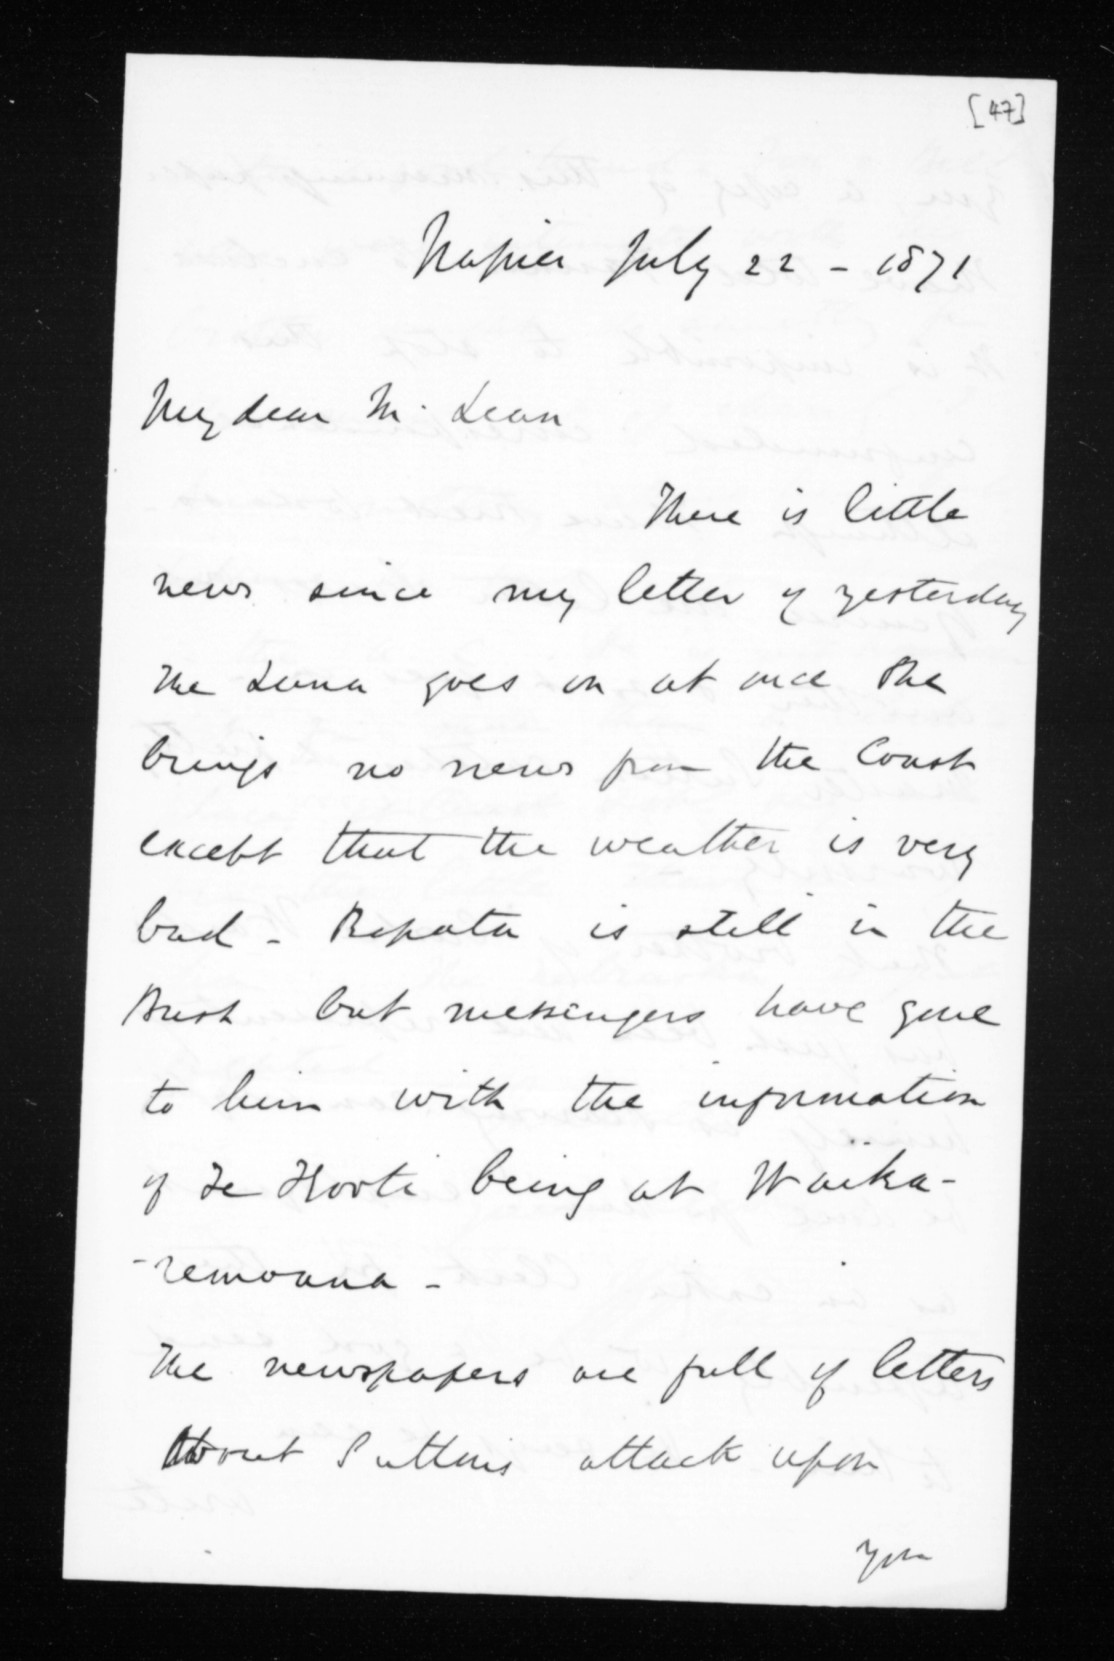 [47]
Napier July 22 - 1871
My dear McLean
There is little
news since my letter of yesterday
The Luna goes on at once She
brings no news from the Coast
except that the weather is very
bad - Ropata is still in the
Bush but messengers have gone
to him with the information
of Te Kooti being at Waika-
-remoana -
The newspapers are full of letters
About Suttons attack upon
you